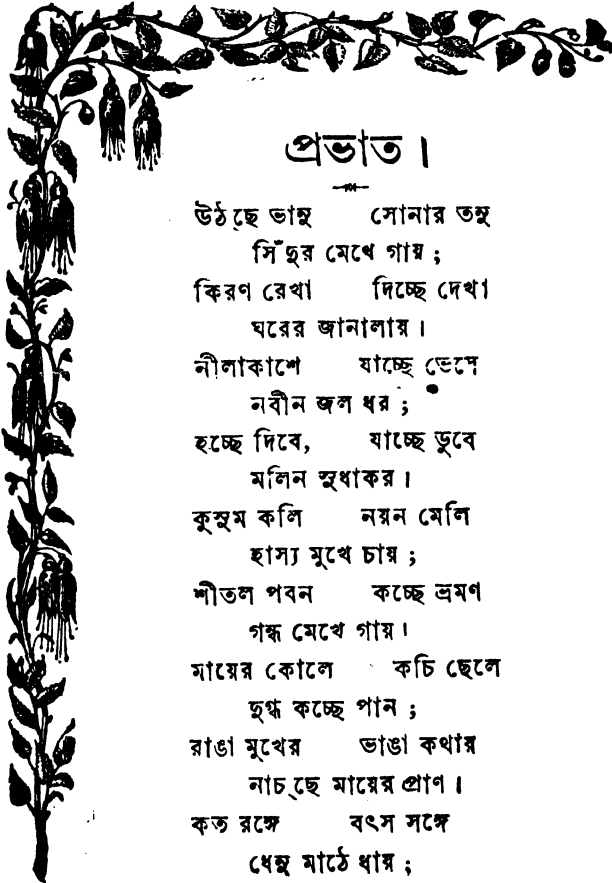 প্রভাত।
উঠ্‌ছে ভানু সোনার তনু
সিঁদুর মেখে গায়;
কিরণ রেখা দিচ্ছে দেখা
ঘরের জানালায়।
নীলাকাশে যাচ্ছে ভেসে
নবীন জল ধর;
হচ্ছে দিবে, যাচ্ছে ডুবে
মলিন সুধাকর।
কুসুম কলি নয়ন মেলি
হাস্য মুখে চায়;
শীতল পবন কচ্ছে ভ্রমণ
গন্ধ মেখে গায়।
মায়ের কোলে কচি ছেলে
দুগ্ধ কচ্ছে পান;
রাঙা মুখের ভাঙা কথায়
নাচ্‌ছে মায়ের প্রাণ।
কত রঙ্গে বৎস সঙ্গে
ধেনু মাঠে ধায়;